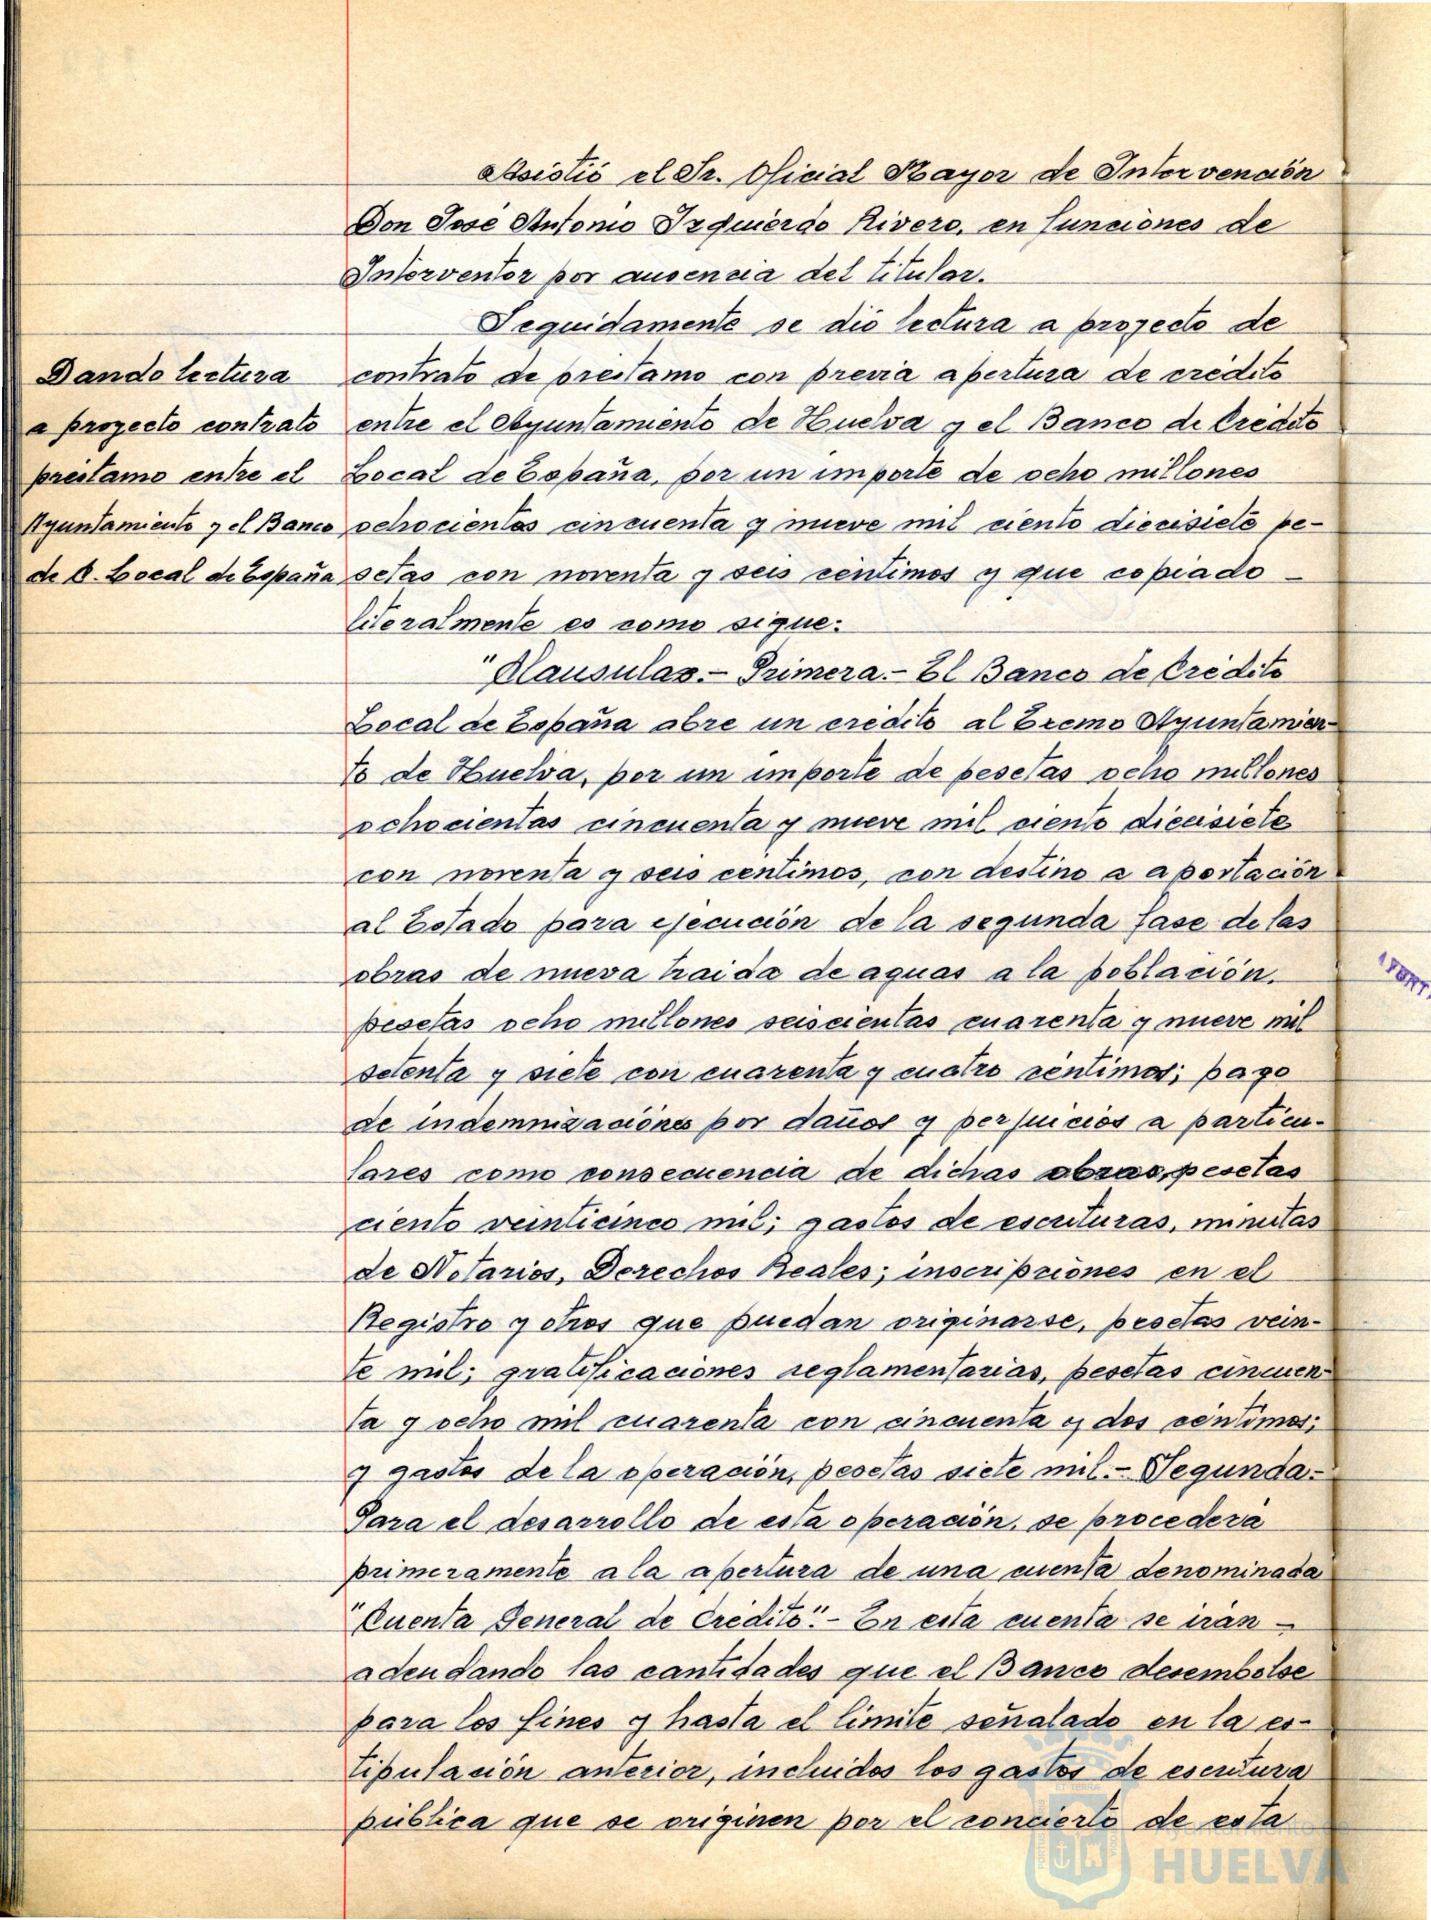 Asistió el Sr. Oficial Mayor de Intervención
Don José Antonio Izquierdo Rivero, en funciones de
Interventor por ausencia del titular.
Seguidamente se dió lectura a proyecto de
contrato de préstamo con previa apertura de crédito
entre el Ayuntamiento de Huelva y el Banco de Crédito
Local de España, por un importe de ocho millones
ochocientas cincuenta y nueve mil ciento diecisiete pe-
setas con noventa y seis céntimos y que copiado -
literalmente es como sigue:
Dando lectura
a proyecto contrato
préstamo entre el
Ayuntamiento y el Banco
de C. Local de España
"Clausulas.- Primera.- El Banco de Crédito
Local de España abre un crédito al Excmo Ayuntamien-
to de Huelva, por un importe de pesetas ocho millones
ochocientas cincuenta y nueve mil ciento diecisiete
con noventa y seis centimos, con destino a aportación
al Estado para ejecución de la segunda fase de las
obras de nueva traida de aguas a la población,
pesetas ocho millones seiscientas cuarenta y nueve mil
setenta y siete con cuarenta y cuatro céntimos; pago
de indemnizaciónes por daños y perjuicios a particu-
lares como consecuencia de dichas obras, pesetas
ciento veinticinco mil; gastos de escrituras, minutas
de Notarios, Derechos Reales; inscripciónes en el
Registro y otros que puedan originarse, pesetas vein-
te mil; gratificaciónes reglamentarias, pesetas cincuen-
ta y ocho mil cuarenta con cincuenta y dos céntimos;
y gastos de la operación, pesetas siete mil.- Segunda.-
Para el desarrollo de esta operación, se procederá
primeramente a la apertura de una cuenta denominada
"Cuenta General de Crédito".- En esta cuenta se irán -
adeudando las cantidades que el Banco desembolse
para los fines y hasta el límite señalado en la es-
tipulación anterior, incluidos los gastos de escritura
pública que se originen por el concierto de esta
Ayuntamiento de
HUELVA